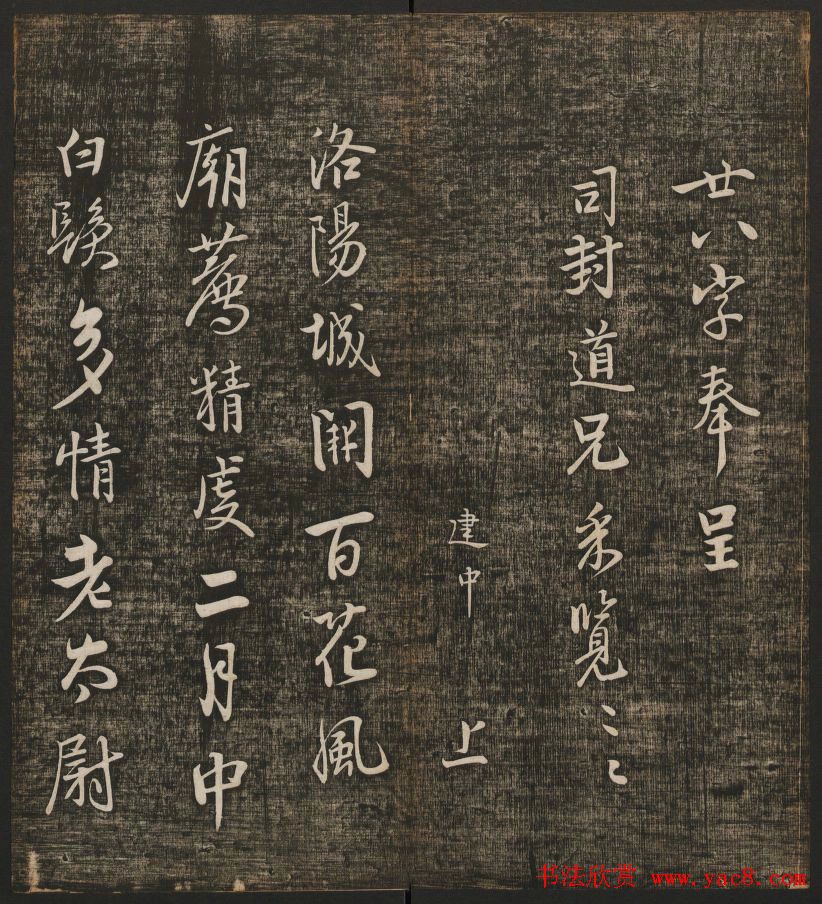 廿八字奉呈
司封道兄采覽〻〻
建中上
洛陽城闕百花風
廟薦精虔二月中
白鬚多情老太尉
书法欣赏 www.yac8.com